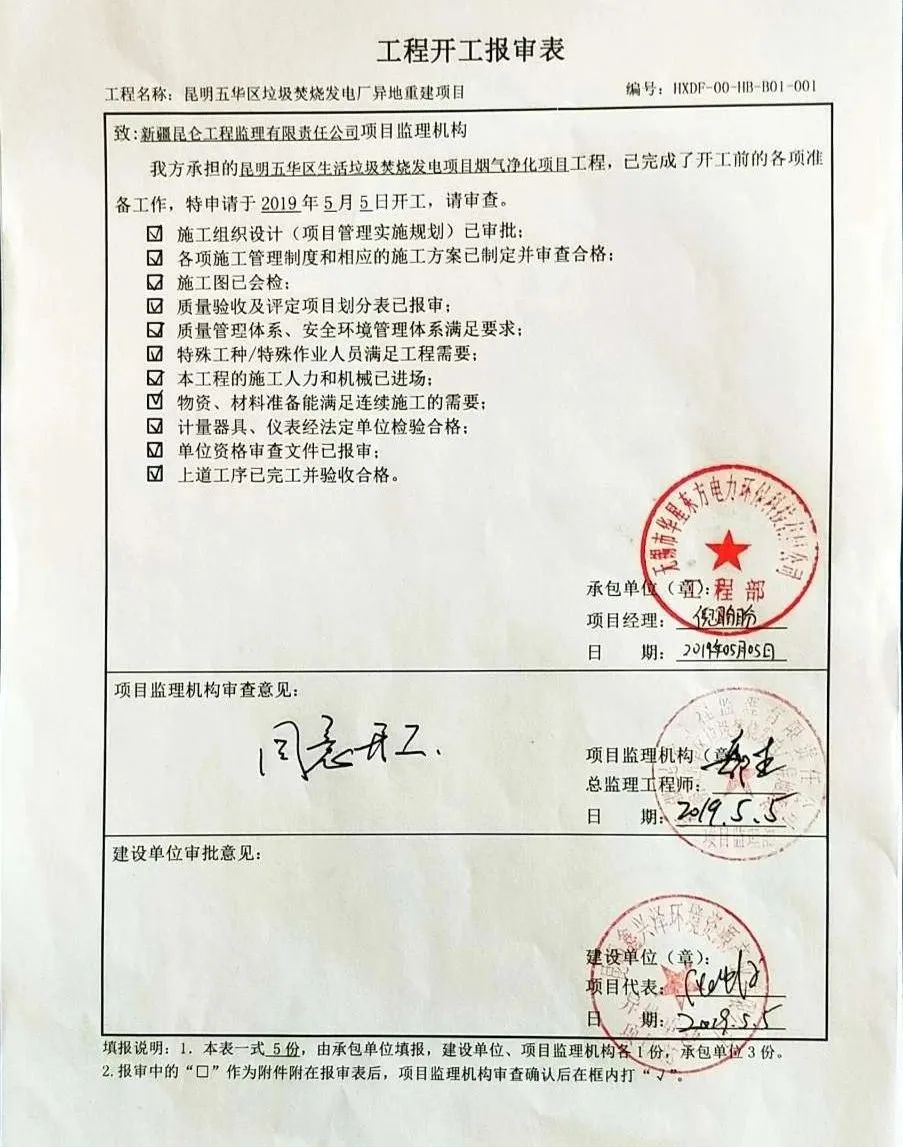 工程开工报审表
工程名称：昆明五华区垃圾焚烧发电厂异地重建项目
编号：HXDF-00-HB-B01-001
致：新疆昆仑工程监理有限责任公司项目监理机构
我方承担的昆明五华区生活垃圾焚烧发电项目烟气净化项目工程，已完成了开工前的各项准
备工作，特申请于 2019 年 5 月 5 日开工，请审查。
☑ 施工组织设计（项目管理实施规划）已审批；
☑ 各项施工管理制度和相应的施工方案已制定并审查合格；
☑ 施工图已会检；
☑ 质量验收及评定项目划分表已报审；
☑ 质量管理体系、安全环境管理体系满足要求；
☑ 特殊工种/特殊作业人员满足工程需要；
☑ 本工程的施工人力和机械已进场；
☑ 物资、材料准备能满足连续施工的需要；
☑ 计量器具、仪表经法定单位检验合格；
☑ 单位资格审查文件已报审；
☑ 上道工序已完工并验收合格。
无锡市华星东方电力环保科技有限公司
工程部
承包单位（章）：
项目经理：倪盼盼
日 期：2019年05月05日
项目监理机构审查意见：
同意开工.
项目监理机构（章）
总监理工程师：
日 期：2019.5.5
建设单位审批意见：
鑫兴泽环境资源
建设单位（章）：
项目代表：
日 期：2019.5.5
填报说明：1. 本表一式 5 份，由承包单位填报，建设单位、项目监理机构各 1 份，承包单位 3 份。
2. 报审中的“□”作为附件附在报审表后，项目监理机构审查确认后在框内打“√”。